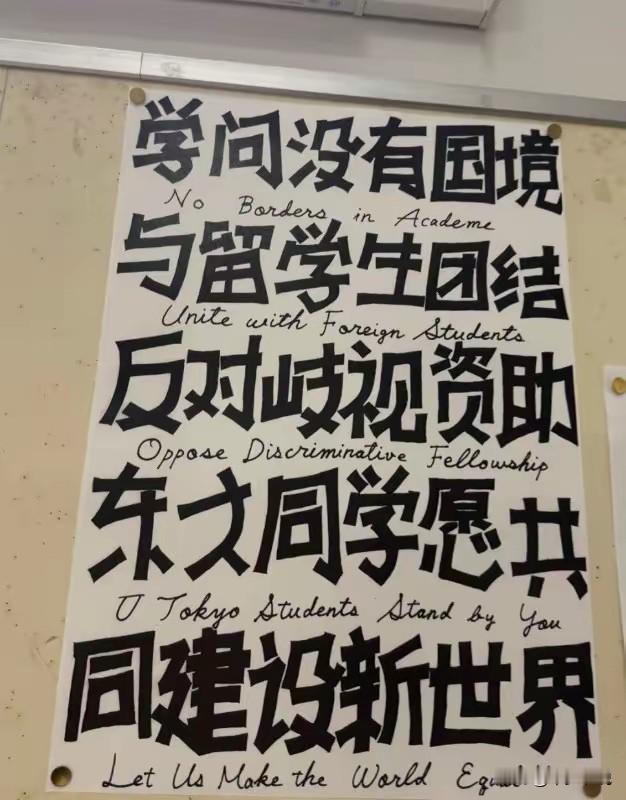 学问没有国境
No Borders in Academe
与留学生团结
Unite with Foreign Students
反对岐视资助
Oppose Discriminative Fellowship
东大同学愿共
U Tokyo Students Stand by You
同建设新世界
Let Us Make the World Equal